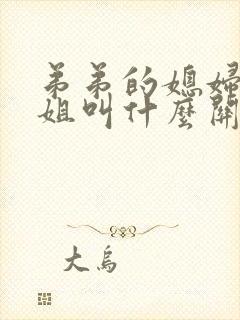 弟弟的媳婦
姐叫什麼關
大烏